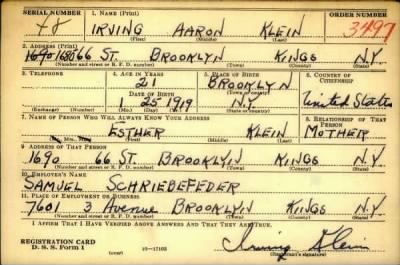 SERIAL NUMBER 1. NAME (Print) ORDER NUMBER
48 IRVIING AARON KLEIN 3497
(First) (Middle) (Last)
2. ADDRESS (Print)
1690 1680 66 ST. BROOKLYN KINGS N.Y.
(Number and street or R. F. D. number) (Town) (County) (State)
3. TELEPHONE 4. AGE IN YEARS 5. PLACE OF BIRTH 6. COUNTRY OF CITIZENSHIP
21 BROOKLYN
(Town or county)
DATE OF BIRTH
1 25 1919 N.Y. United States
(Exchange) (Number) (Mo.) (Day) (Yr.) (State or country)
7. NAME OF PERSON WHO WILL ALWAYS KNOW YOUR ADDRESS 8. RELATIONSHIP OF THAT PERSON
ESTHER KLEIN MOTHER
(Mr., Mrs., Miss) (First) (Middle) (Last)
9. ADDRESS OF THAT PERSON
1690 66 ST. BROOKLYN KINGS N.Y.
(Number and street or R. F. D. number) (Town) (County) (State)
10. EMPLOYER'S NAME
SAMUEL SCHRIEBEFEDER
11. PLACE OF EMPLOYMENT OR BUSINESS
7601 3 Avenue BROOKLYN KINGS N.Y.
(Number and street or R. F. D. number) (Town) (County) (State)
I AFFIRM THAT I HAVE VERIFIED ABOVE ANSWERS AND THAT THEY ARE TRUE.
REGISTRATION CARD
D. S. S. Form 1 16—17105 Irving Klein
(Registrant's signature)